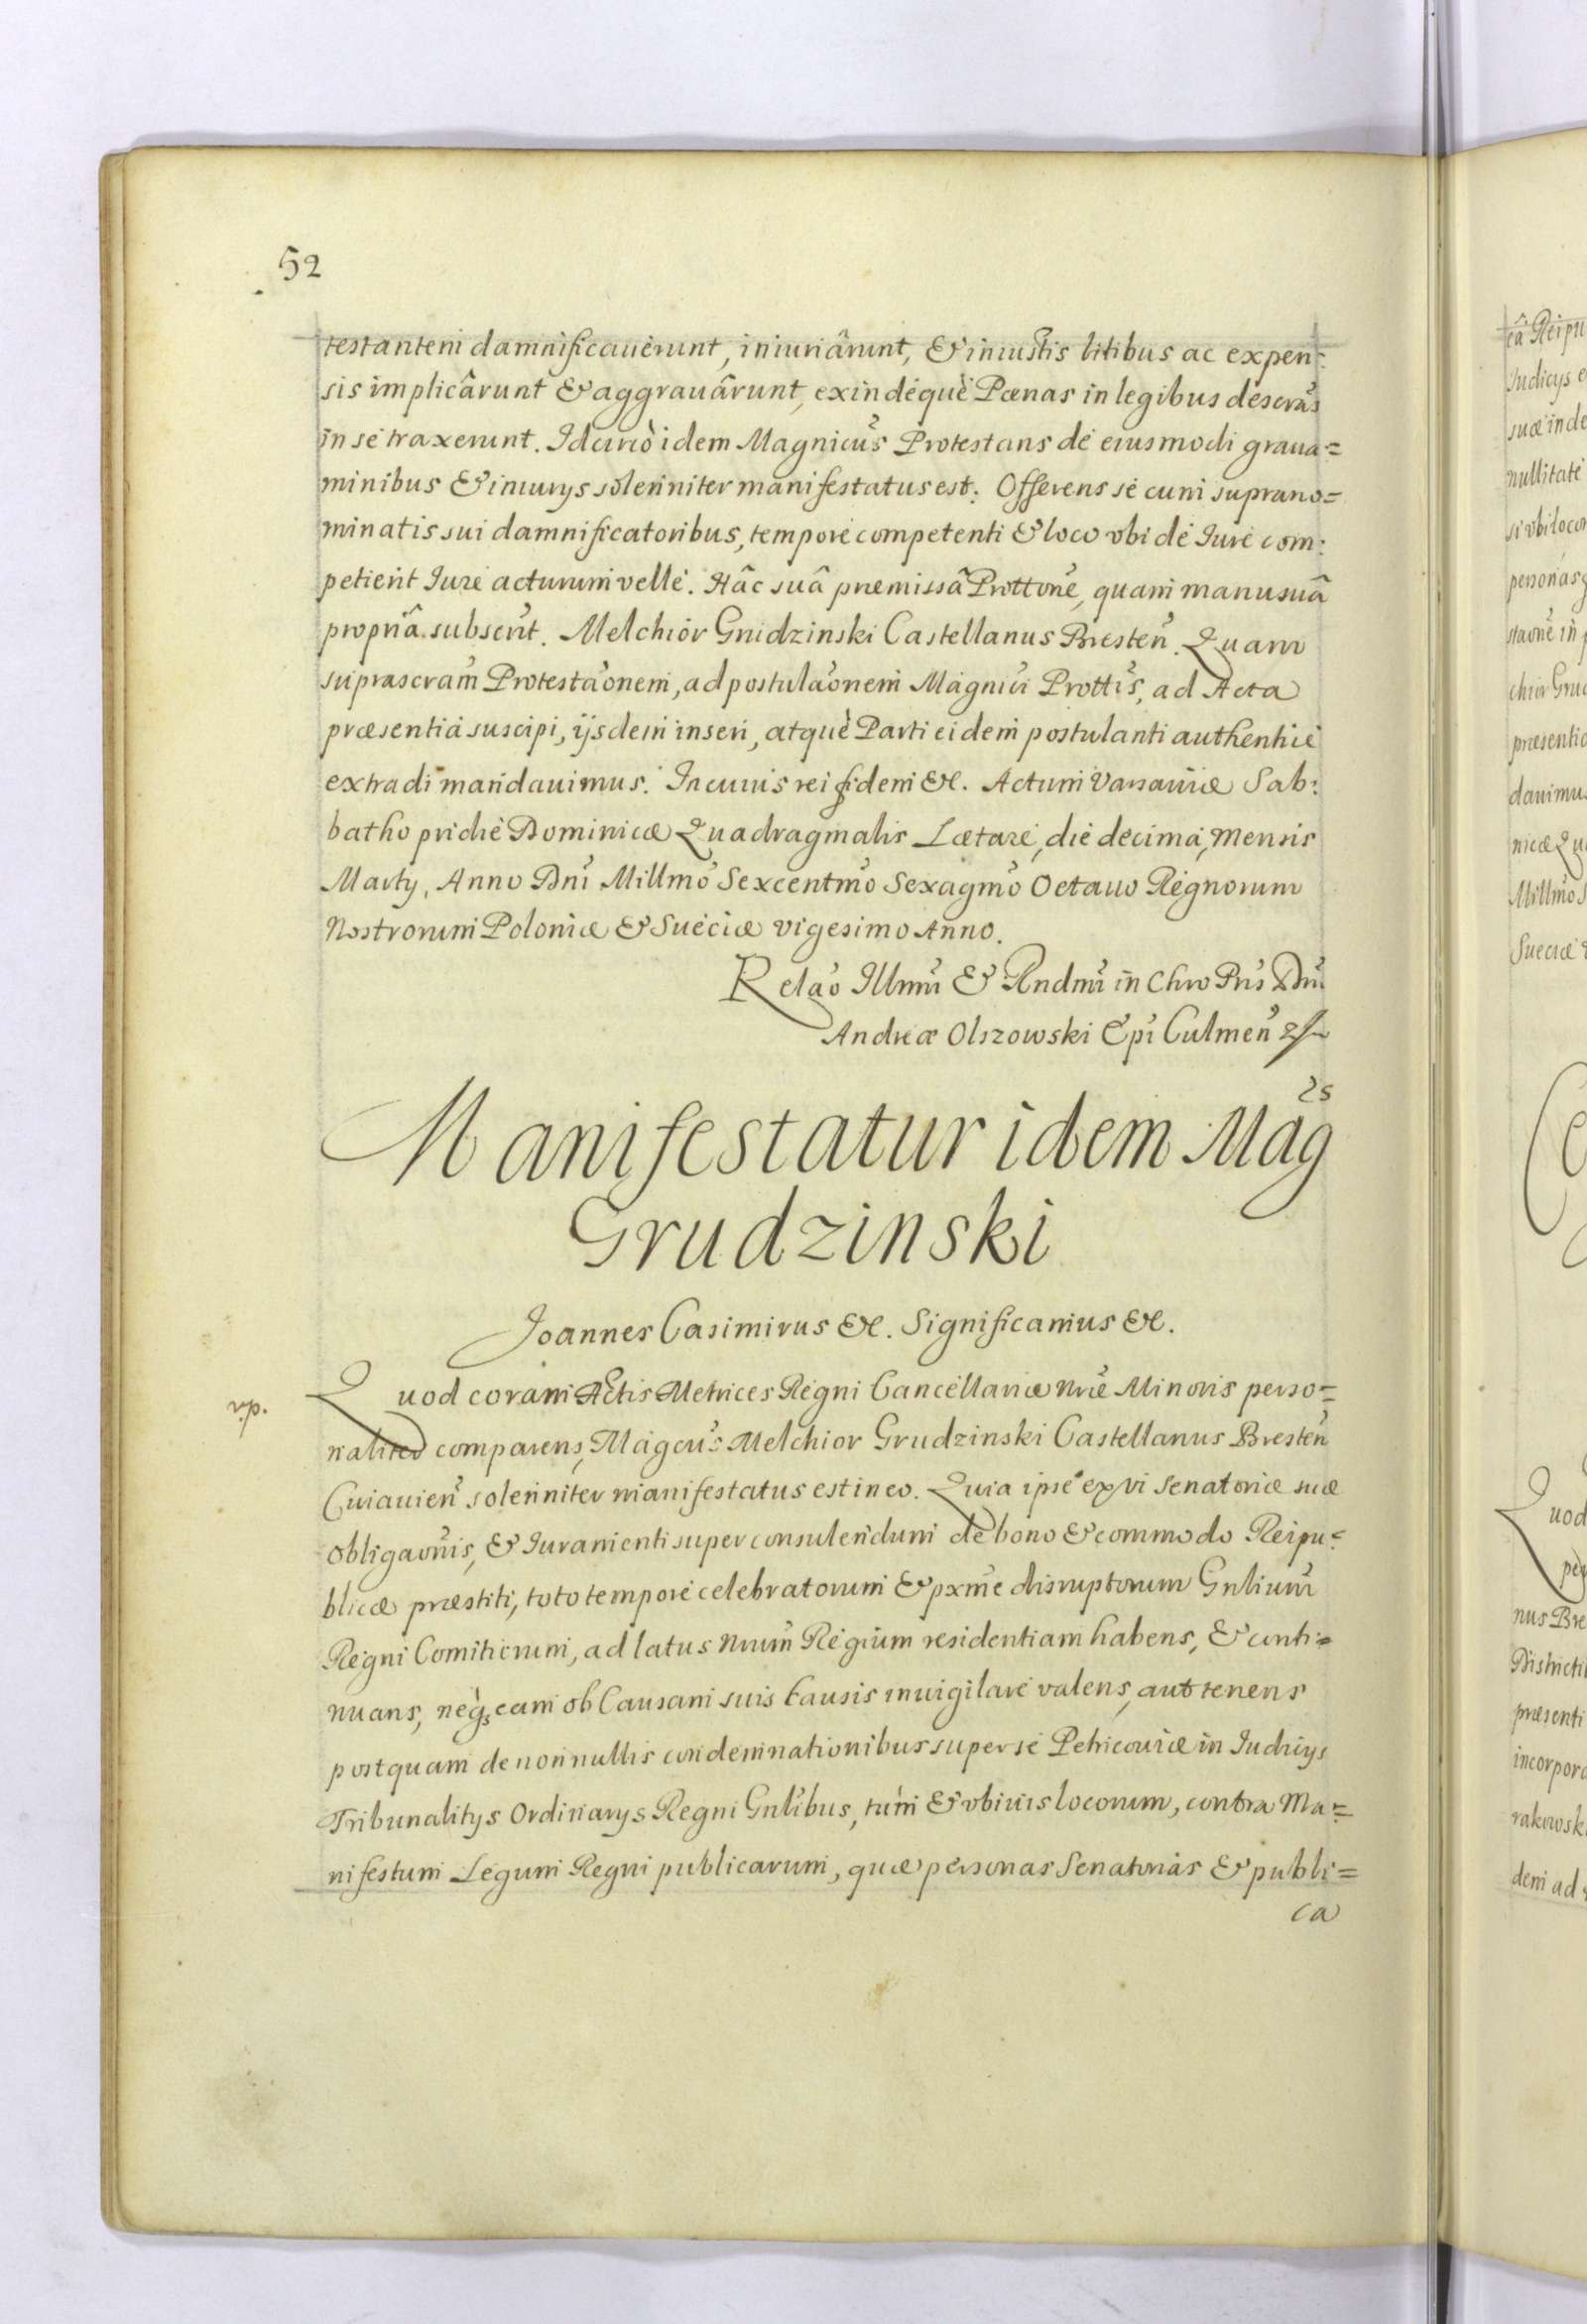 52
testantem damnificaverunt, iniuriârunt, & iniustis litibus ac expen:
sis implicârunt & aggravârunt, exindequè Pœnas in legibus descras
in se traxerunt. Idcircò idem Magnicus Protestans de eiusmodi grava=
minibus & iniurys solenniter manifestatus est. Offerens se cum suprano=
minatis sui damnificatoribus, tempore competenti & loco vbi de Iure com:
petierit Iure acturum velle. Hâc suâ præmissâ Prottone, quam manu suâ
propriâ subscrit. Melchior Grudzinski Castellanus Bresten. Quam
suprascram Protestaonem, ad postulaonem Magnici Prottis, ad Acta
præsentia suscipi, ijsdem inseri, atquè Parti eidem postulanti authentice
extradi mandavimus. In cuius rei fidem &c. Actum Varsaviæ Sab:
batho pridie Dominicæ Quadragmalis Lætare, die decima, Mensis
Marty, Anno Dni Millmo Sexcentmo Sexagmo Octavo Regnorum
Nostrorum Poloniæ & Sueciæ vigesimo Anno.
Relao Illmi & Rndmi in Chro Pris Dni
Andreæ Olszowski Epi Culmen
Manifestatur idem Mag cs
Grudzinski
Joannes Casimirus &c. Significamus &c.
Quod coram Actis Metrices Regni Cancellariæ nræ Minoris perso=
naliter comparens, Magcus Melchior Grudzinski Castellanus Bresten
Cuiavien solenniter manifestatus est in eo. Quia ipse ex vi Senatoriæ suæ
obligaonis, & Iuramenti super consulendum de bono & commodo Reipu=
blicæ præstiti, toto tempore celebratorum & pxme disruptorum Gnlium
Regni Comitiorum, ad latus nrum Regium residentiam habens, & conti=
nuans, neq; eam ob Causam suis Causis invigilare valens, aut tenens
postquam de nonnullis condemnationibus super se Petricoviæ in Iudicys
Tribunalitys Ordinarys Regni Gnlibus, tùm & vbivis locorum, contra Ma=
nifestum Legum Regni publicarum, quæ personas Senatorias & publi=
ca